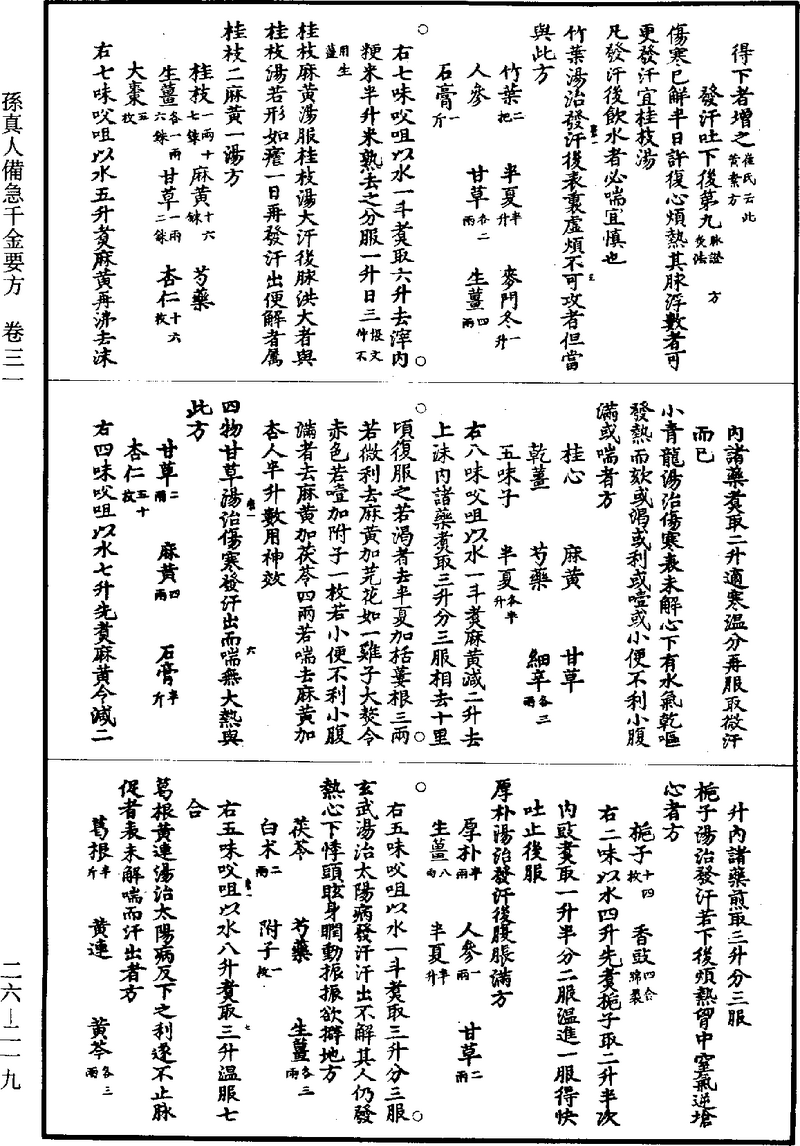 孫真人備急千金要方　卷三一
二六—二一九
得下者增之崔氏云此黃素方
發汗吐下後第九脉證　方灸法
傷寒已解半日許復心煩熱其脉浮數者可
更發汗宜桂枝湯
凡發汗後飲水者必喘宜慎也
竹葉湯治發汗後表裏虛煩不可攻者但當
與此方
竹葉二把　半夏半升　麥門冬一升
人參　甘草各二兩　生薑四兩
石膏一斤
右七味㕮咀以水一斗煑取六升去滓內
粳米半升米熟去之分服一升日三張文仲不
用生薑
桂枝麻黃湯服桂枝湯大汗後脉洪大者與
桂枝湯若形如瘧一日再發汗出便解者屬
桂枝二麻黃一湯方
桂枝一兩十七銖　麻黃十六銖　芍藥
生薑各一兩六銖　甘草一兩二銖　杏仁十六枚
大棗五枚
右七味㕮咀以水五升煑麻黃再沸去沫
內諸藥煑取二升適寒溫分再服取微汗
而已
小青龍湯治傷寒表未解心下有水氣乾嘔
發熱而欬或渴或利或噎或小便不利小腹
滿或喘者方
桂心　麻黃　甘草
乾薑　芍藥　細辛各三兩
五味子　半夏各半升
右八味㕮咀以水一斗煑麻黃減二升去
上沫內諸藥煑取三升分三服相去十里
頃復服之若渴者去半夏加栝蔞根三兩
若微利去麻黃加芫花如一雞子大熬令
赤色若噎加附子一枚若小便不利小腹
滿者去麻黃加茯苓四兩若喘去麻黃加
杏人半升數用神效
四物甘草湯治傷寒發汗出而喘無大熱與
此方
甘草二兩　麻黃四兩　石膏半斤
杏仁五十枚
右四味㕮咀以水七升先煑麻黃令減二
升內諸藥煎取三升分三服
梔子湯治發汗若下後煩熱胷中窒氣逆搶
心者方
梔子十四枚　香豉四合綿裹
右二味以水四升先煑梔子取二升半次
內豉煑取一升半分二服溫進一服得快
吐止後服
厚朴湯治發汗後腹脹滿方
厚朴半兩　人參一兩　甘草二兩
生薑八兩　半夏半升
右五味㕮咀以水一斗煑取三升分三服
玄武湯治太陽病發汗汗出不解其人仍發
熱心下悸頭眩身瞤動振振欲擗地方
茯苓　芍藥　生薑各三兩
白术二兩　附子一枚
右五味㕮咀以水八升煑取三升溫服七
合
葛根黃連湯治太陽病反下之利遂不止脉
促者表未解喘而汗出者方
葛根半斤　黃連　黃芩各三兩